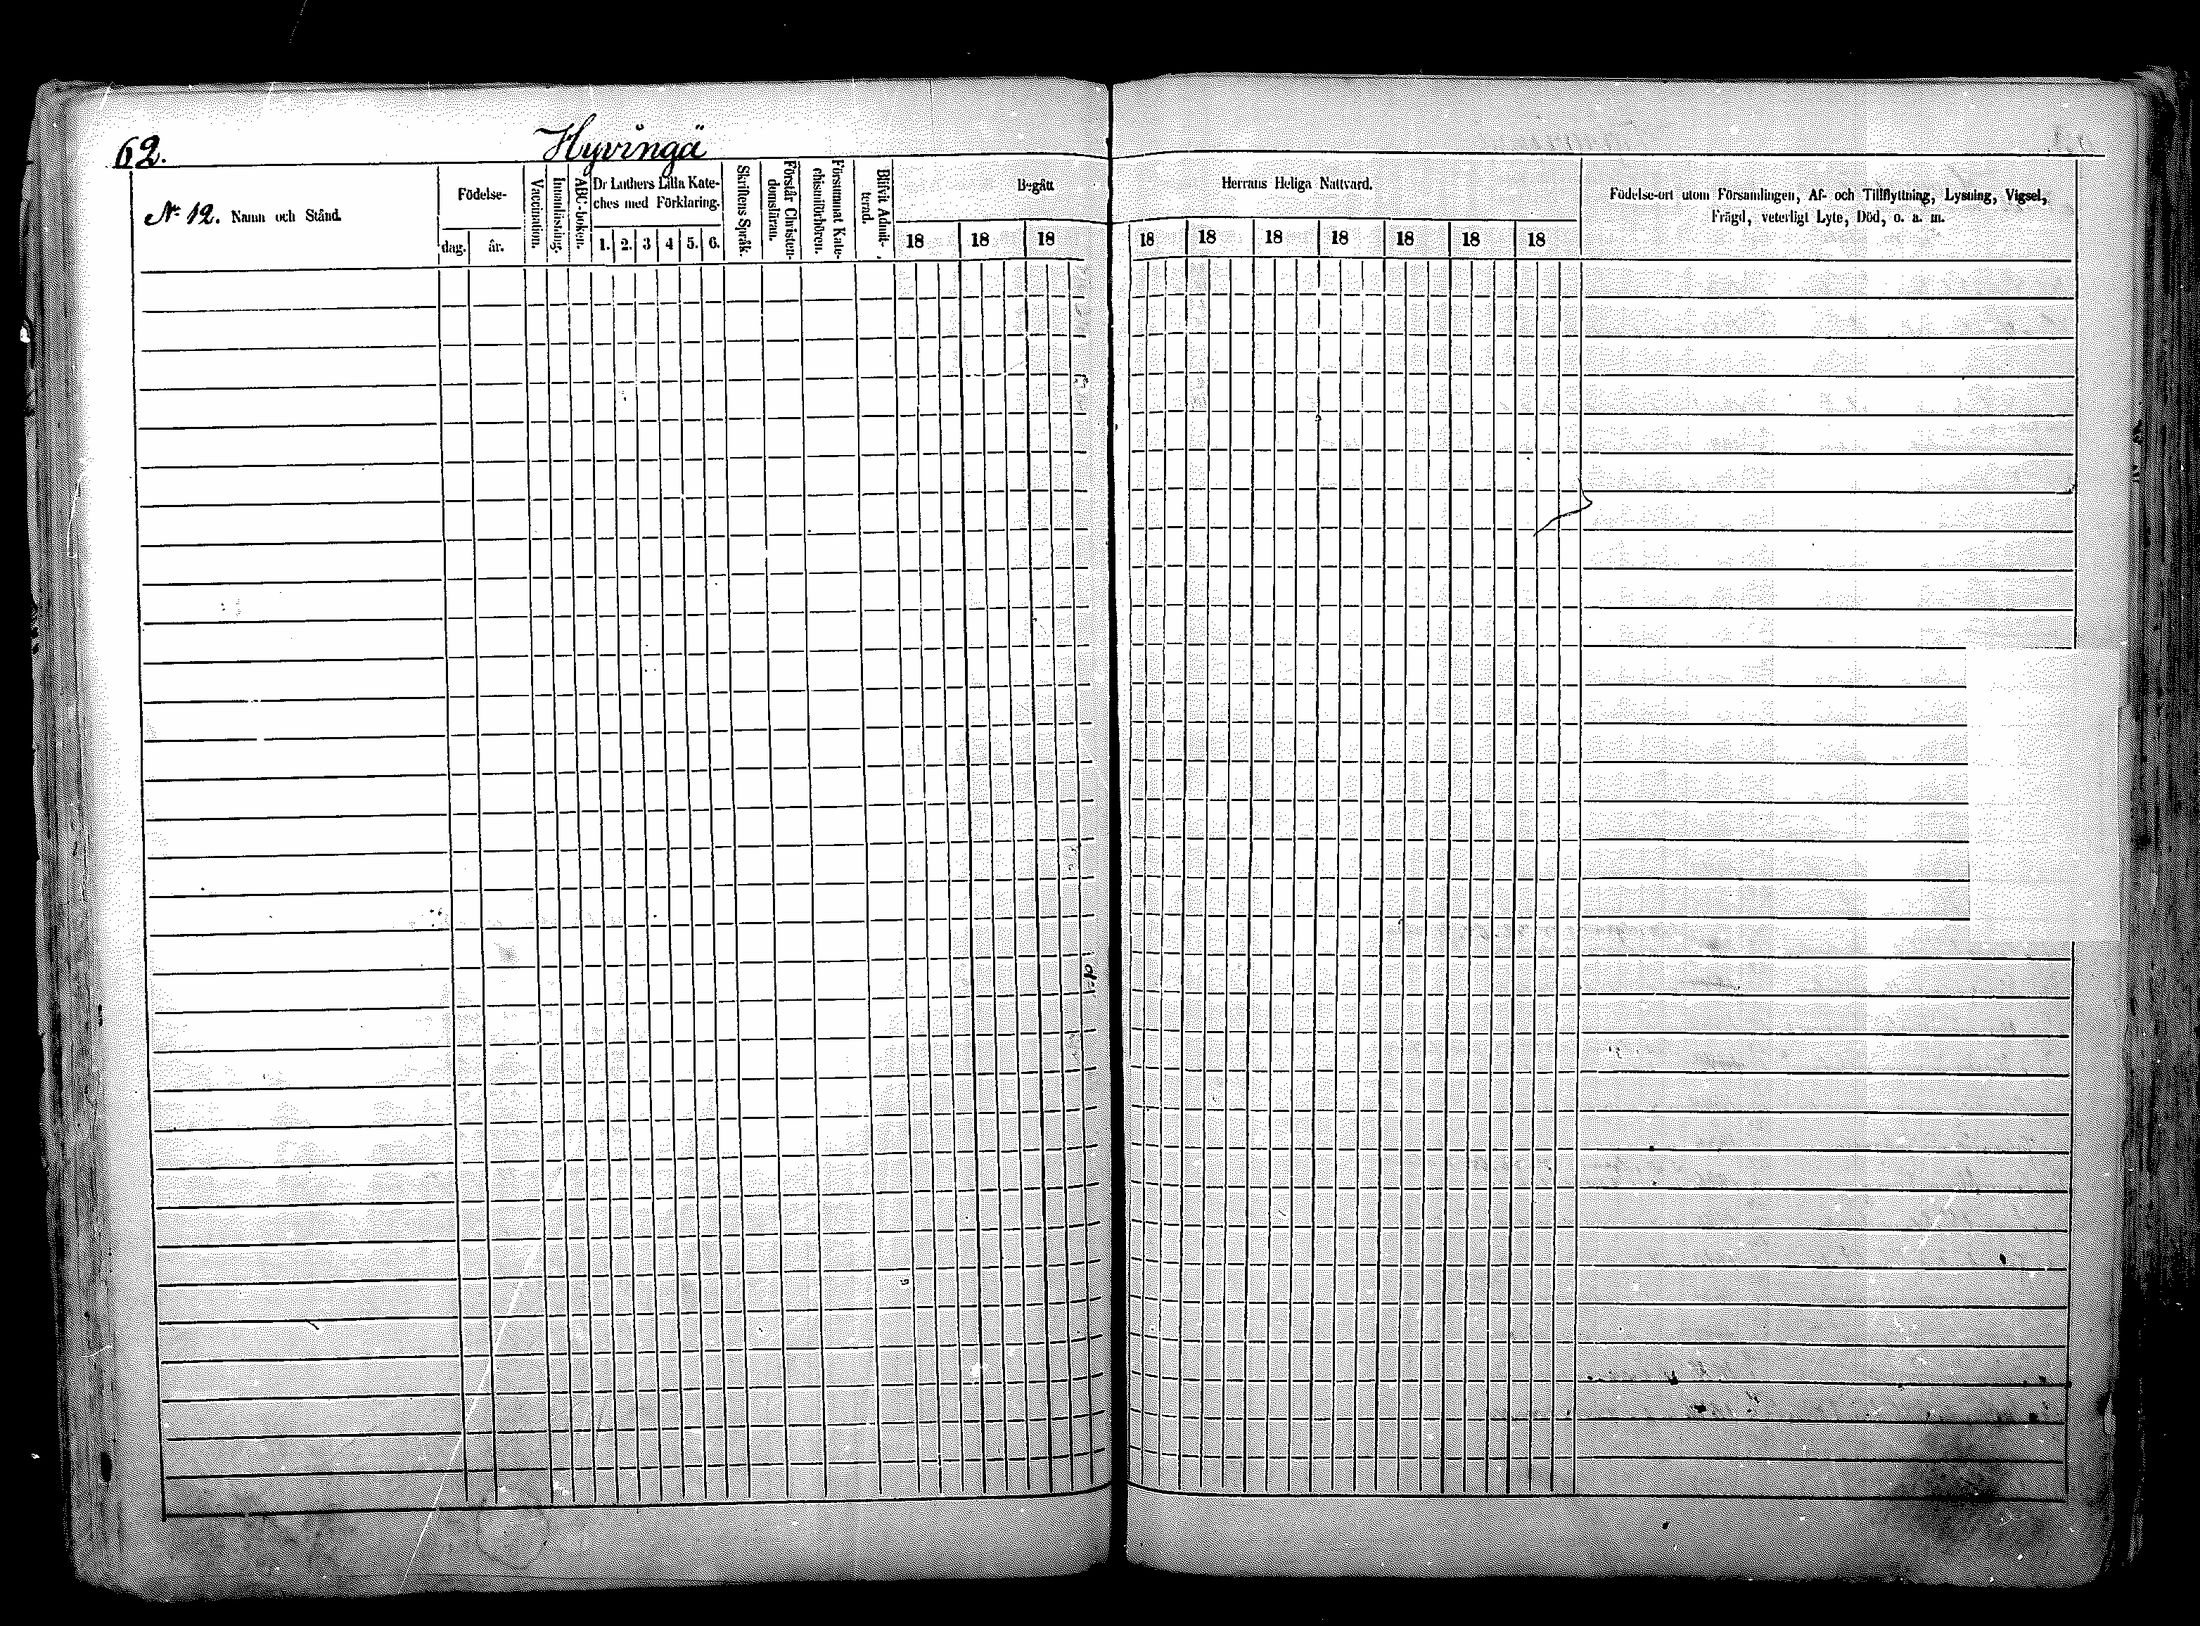 62.
Hyvingä
№ 12. Namn och Stånd.
Födelse-
dag. år.
Vaccination.
Innanläsning.
ABC-boken.
Dr Luthers Lilla Kate-
ches med Förklaring.
1. 2. 3 4 5. 6.
Skriftens Språk.
Förstår Christen-
domsläran.
Försummat Kate-
chismiförhören.
Blifvit Admit-
terad.
Begått
18 18 18
Herrans Heliga Nattvard.
18 18 18 18 18 18 18
Födelse-ort utom Församlingen, Af- och Tillflyttning, Lysning, Vigsel,
Frägd, veterligt Lyte, Död, o. a. m.